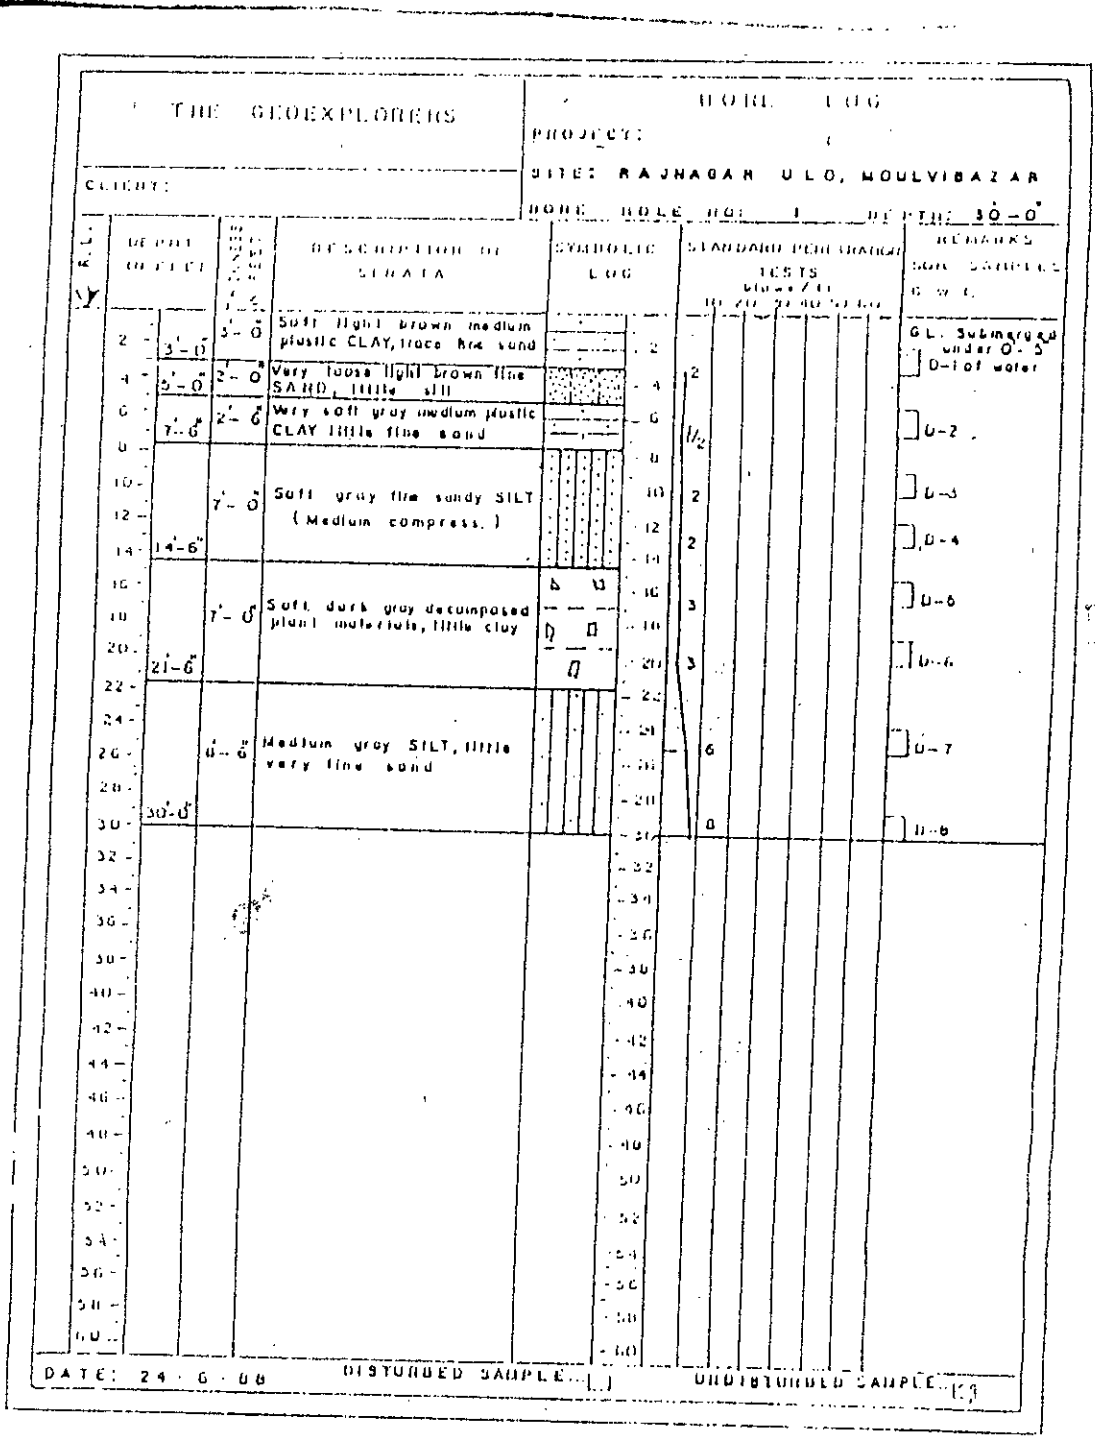 THE GEOEXPLORERS
BORE LOG
PROJECT:
CLIENT:
SITE: RAJNAGAR U L O, MOULVIBAZAR
BORE HOLE NO: 1 DEPTH: 30'-0"
R.L.
DEPTH IN FEET
DESCRIPTION OF STRATA
SYMBOLIC LOG
STANDARD PENETRATION TESTS
blows / ft
10 20 30 40 50 60
REMARKS
SOIL SAMPLES
G. W. L.
3'-0" 3'-0" Soft light brown medium plastic CLAY, trace fine sand
G L. Submerged under 0'-5" of water
5'-0" 2'-0" Very loose light brown fine SAND, little silt 2 D-1
7'-6" 2'-6" Very soft gray medium plastic CLAY little fine sand 1/2 D-2
14'-6" 7'-0" Soft gray fine sandy SILT (Medium compress.)
2 D-3
2 D-4
21'-6" 7'-0" Soft dark gray decomposed plant materials, little clay
3 D-5
3 D-6
30'-0" 8'-6" Medium gray SILT, little very fine sand
6 D-7
8 D-8
2 4 6 8 10 12 14 16 18 20 22 24 26 28 30 32 34 36 38 40 42 44 46 48 50 52 54 56 58 60
2 4 6 8 10 12 14 16 18 20 22 24 26 28 30 32 34 36 38 40 42 44 46 48 50 52 54 56 58 60
DATE: 24 · 6 · 88 DISTURBED SAMPLE UNDISTURBED SAMPLE